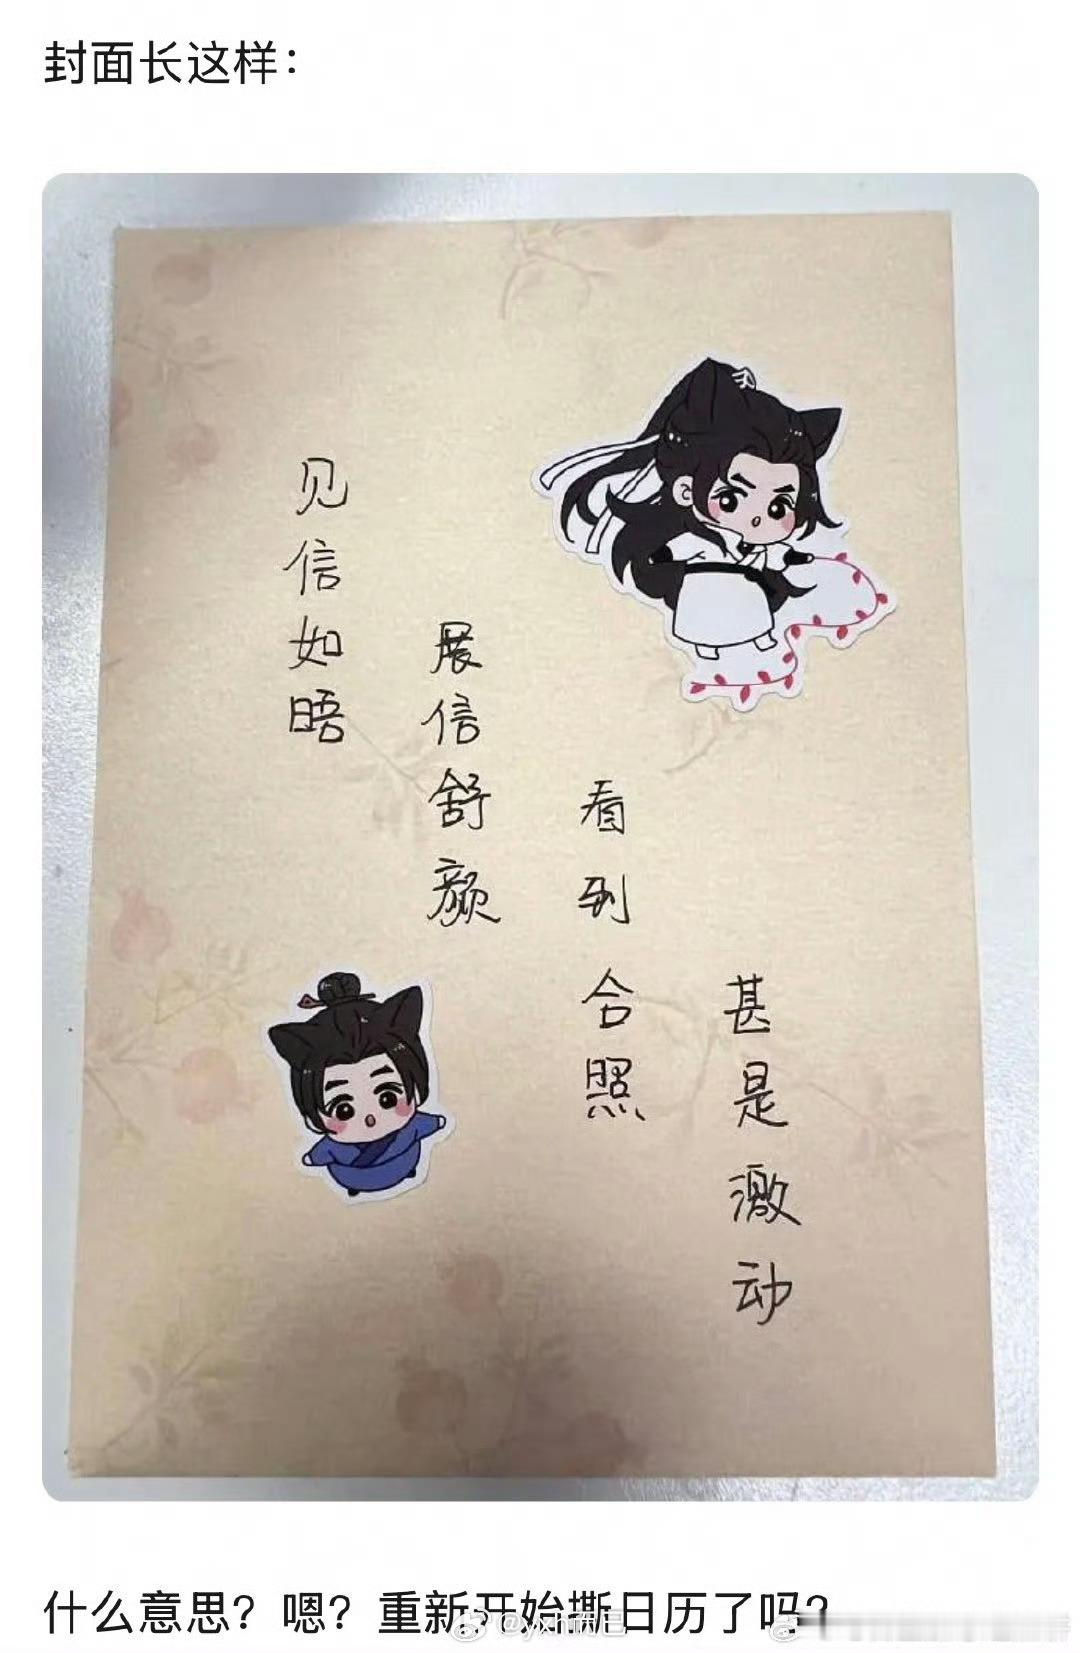 封面长这样：
见信如晤
展信舒颜
看到合照
甚是激动
什么意思？嗯？重新开始撕日历了吗？